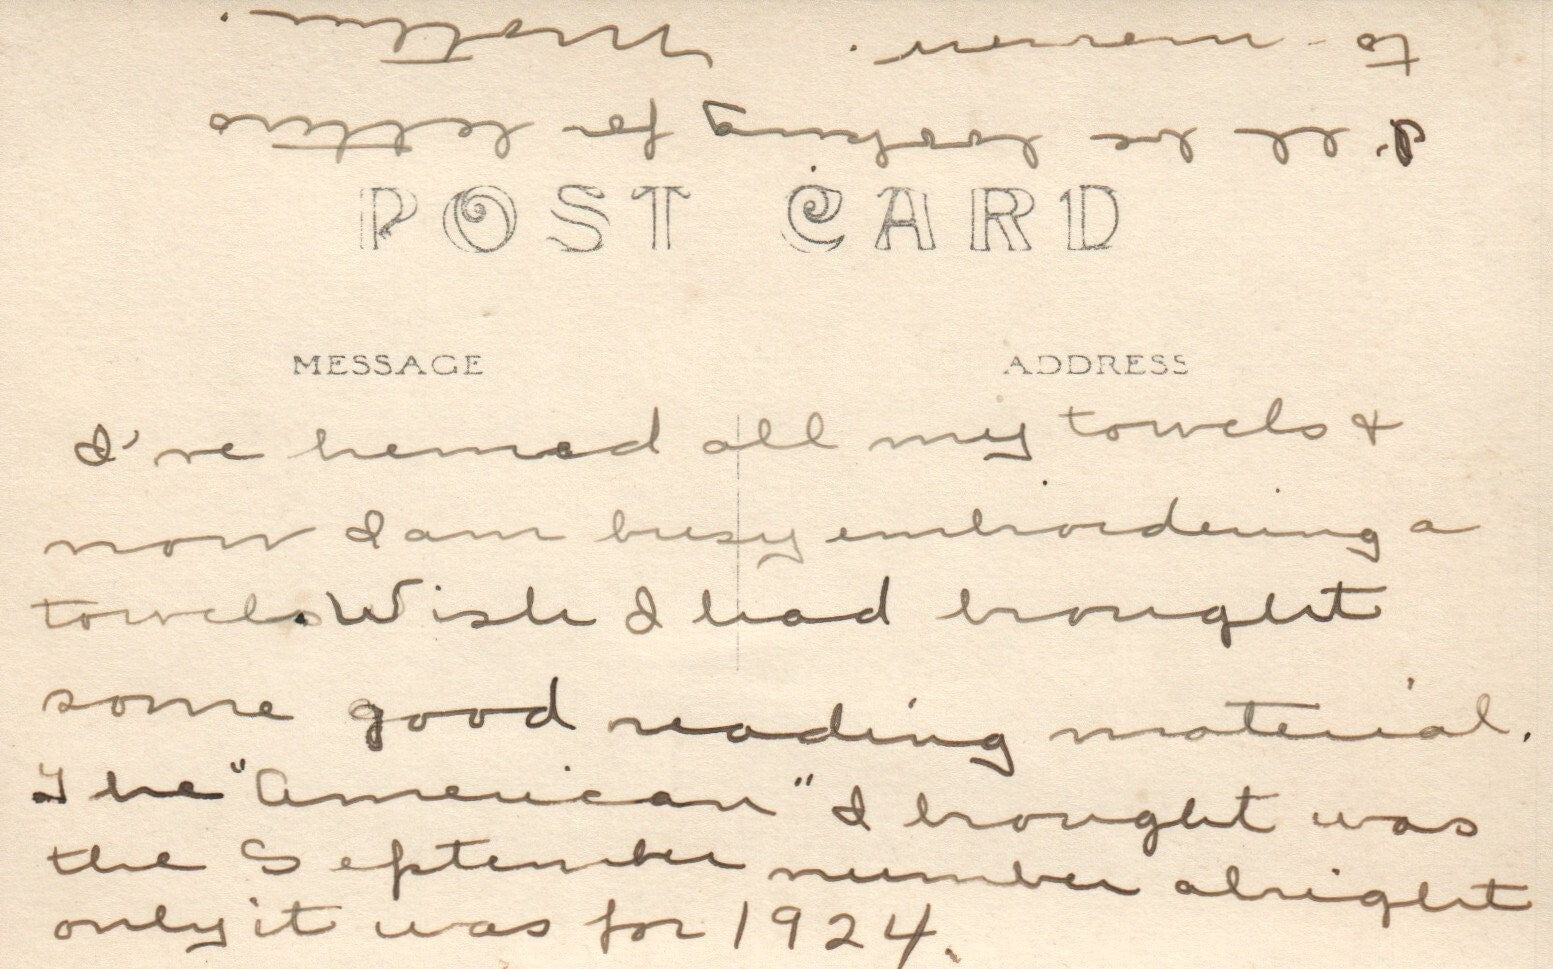 POST CARD
MESSAGE
ADDRESS
I've hemed all my towels &
now I am busy embroidering a
towels. Wish I had brought
some good reading material.
The "American" I brought was
the September number alright
only it was for 1924.
I'll be looking for letters
to-morrow. Mother.